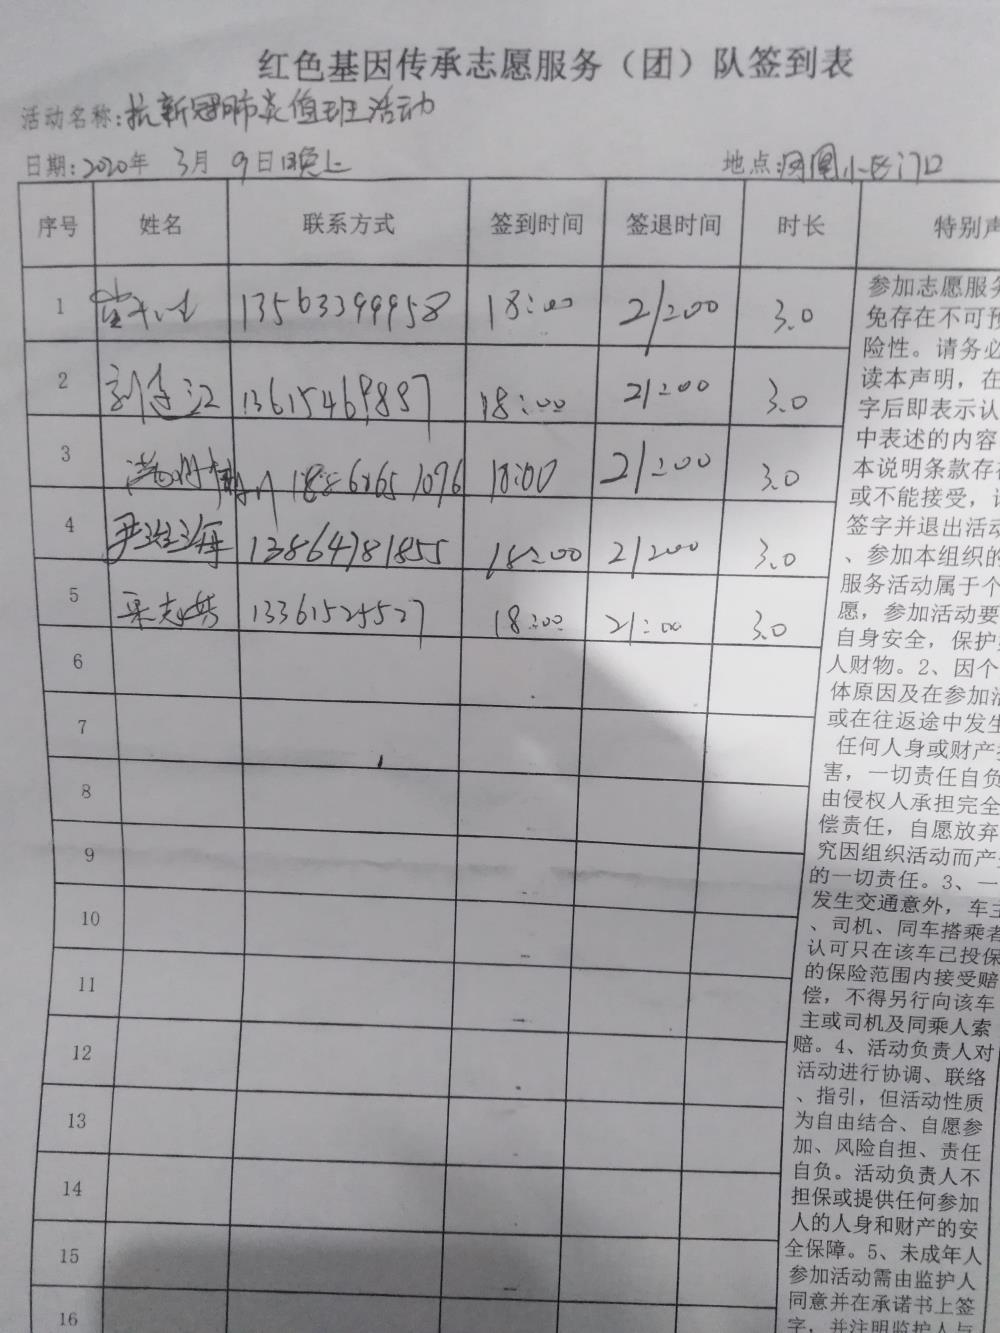 红色基因传承志愿服务（团）队签到表
活动名称:抗新冠肺炎值班活动
日期:2020年 3月 9日晚上 地点: 小区门口
序号 姓名 联系方式 签到时间 签退时间 时长 特别声
1 13563399958 18:00 21:00 3.0
2 13615469887 18:00 21:00 3.0
3 18:00 21:00 3.0
4 13864781855 18:00 21:00 3.0
5 13361525527 18:00 21:00 3.0
6
7
8
9
10
11
12
13
14
15
16
参加志愿服务
免存在不可预
险性。请务必
读本声明，在
字后即表示认
中表述的内容
本说明条款存
或不能接受，
签字并退出活动
、参加本组织的
服务活动属于个
愿，参加活动要
自身安全，保护
人财物。2、因个
体原因及在参加活
或在往返途中发生
任何人身或财产
害，一切责任自负
由侵权人承担完全
偿责任，自愿放弃
究因组织活动而产
的一切责任。3、一
发生交通意外，车主
、司机、同车搭乘者
认可只在该车已投保
的保险范围内接受赔
偿，不得另行向该车
主或司机及同乘人索
赔。4、活动负责人对
活动进行协调、联络
、指引，但活动性质
为自由结合、自愿参
加、风险自担、责任
自负。活动负责人不
担保或提供任何参加
人的人身和财产的安
全保障。5、未成年人
参加活动需由监护人
同意并在承诺书上签
字，并注明监护人与